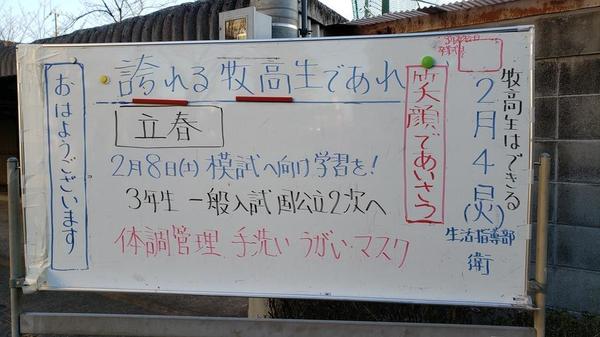 牧高生はできる
2月4日(火)
生活指導部
衛
笑顔であいさつ
誇れる牧高生であれ
立春
2月8日(土) 模試へ向け学習を!
3年生 一般入試 国公立2次へ
体調管理 手洗い うがい マスク
おはようございます